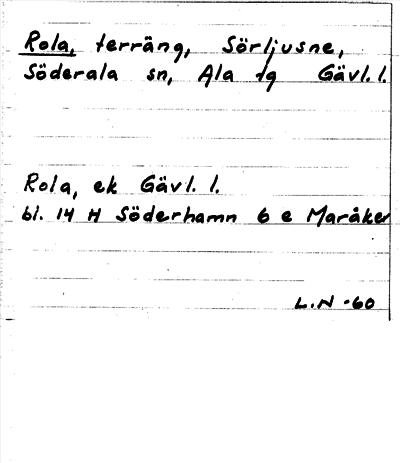 Rola, terräng, Sörljusne,
Söderala sn, Ala tg Gävl. l.
Rola, ek Gävl. l.
bl. 14 H Söderhamn 6 e Maråker
L.N -60